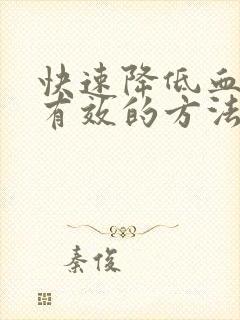 快速降低血
有效的方法
秦俊